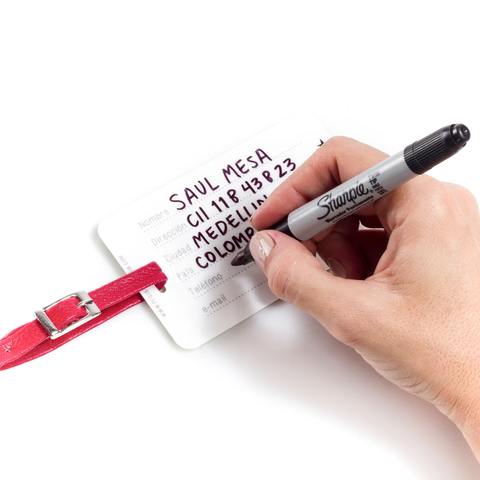 Nombre SAUL MESA
Dirección Cll 11B 43B 23
Ciudad MEDELLIN
País COLOMB
Teléfono
e-mail
Sharpie